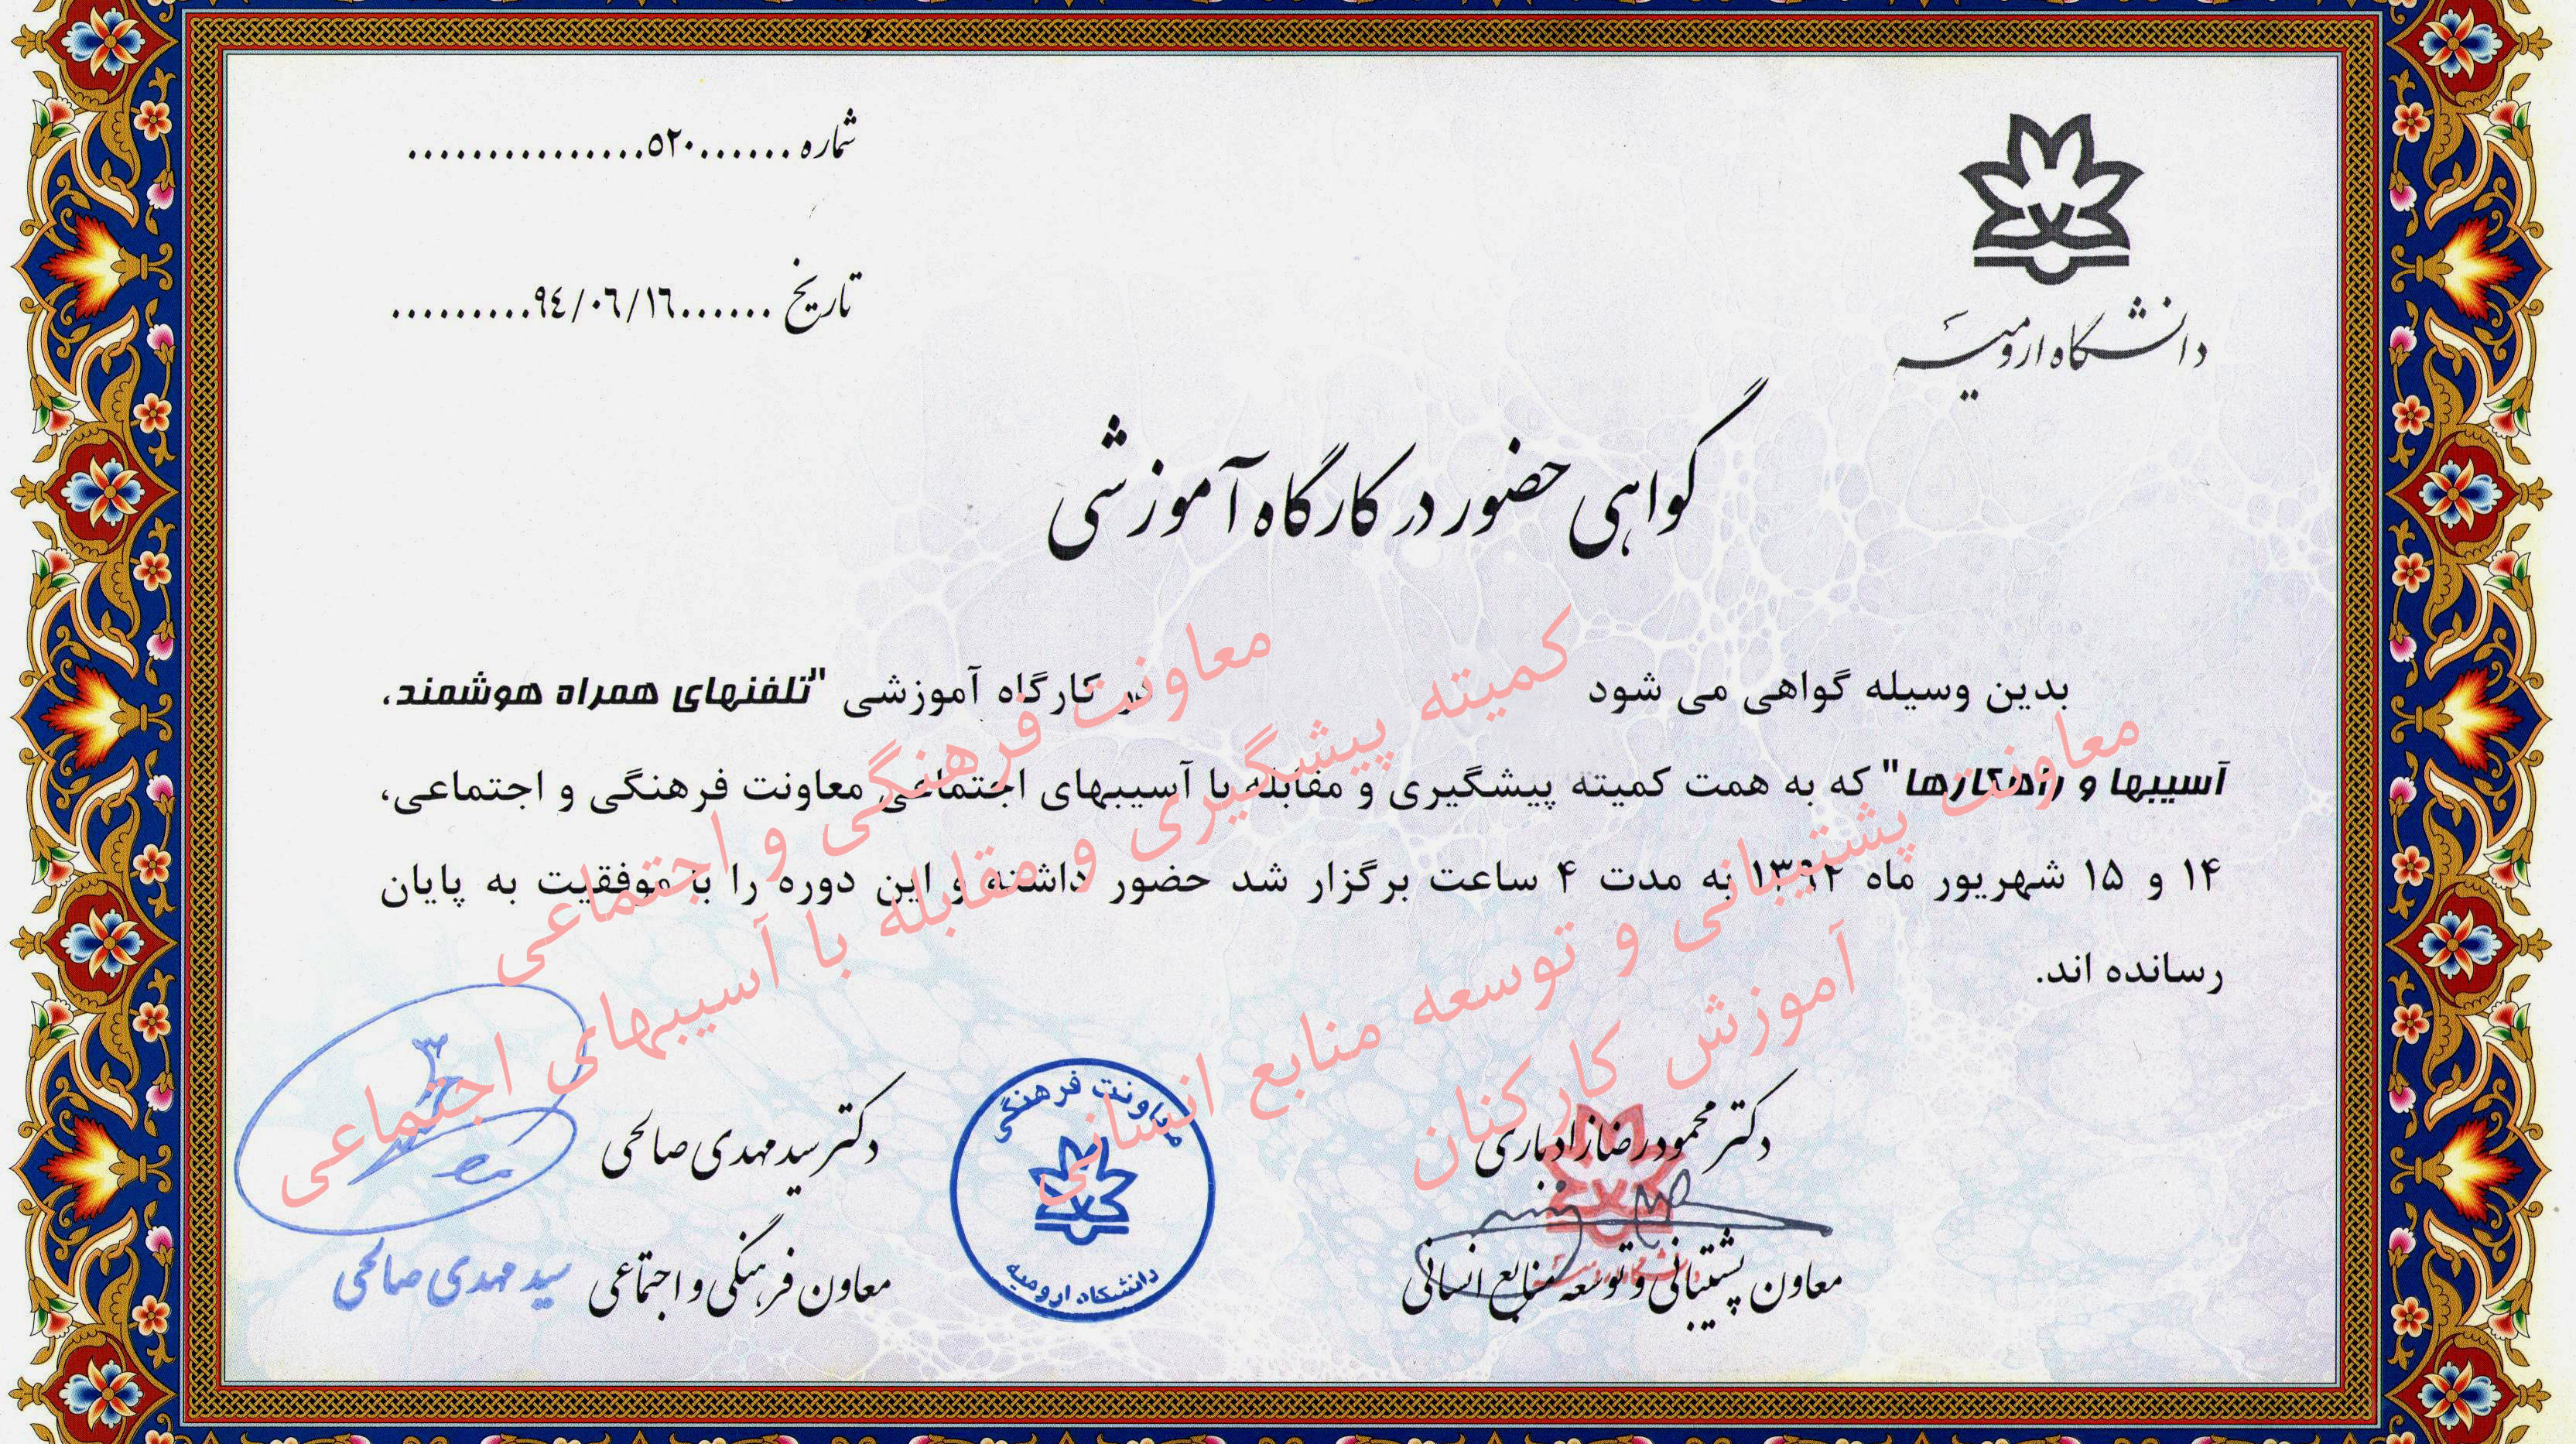 دانشگاه ارومیه
شماره ......۵۲۰................
تاریخ ......۹٤/۰٦/۱٦.........
گواهی حضور در کارگاه آموزشی
بدین وسیله گواهی می شود در کارگاه آموزشی "تلفنهای همراه هوشمند،
آسیبها و راهکارها" که به همت کمیته پیشگیری و مقابله با آسیبهای اجتماعی معاونت فرهنگی و اجتماعی،
۱۴ و ۱۵ شهریور ماه ۱۳۹۲ به مدت ۴ ساعت برگزار شد حضور داشته و این دوره را با موفقیت به پایان
رسانده اند.
معاونت فرهنگی و اجتماعی
کمیته پیشگیری و مقابله با آسیبهای اجتماعی
معاونت پشتیبانی و توسعه منابع انسانی
آموزش کارکنان
دکتر محمودرضا زادباری
معاون پشتیبانی و توسعه منابع انسانی
معاونت فرهنگی
دانشگاه ارومیه
دکتر سید مهدی صالحی
معاون فرهنگی و اجتماعی
سید مهدی صالحی